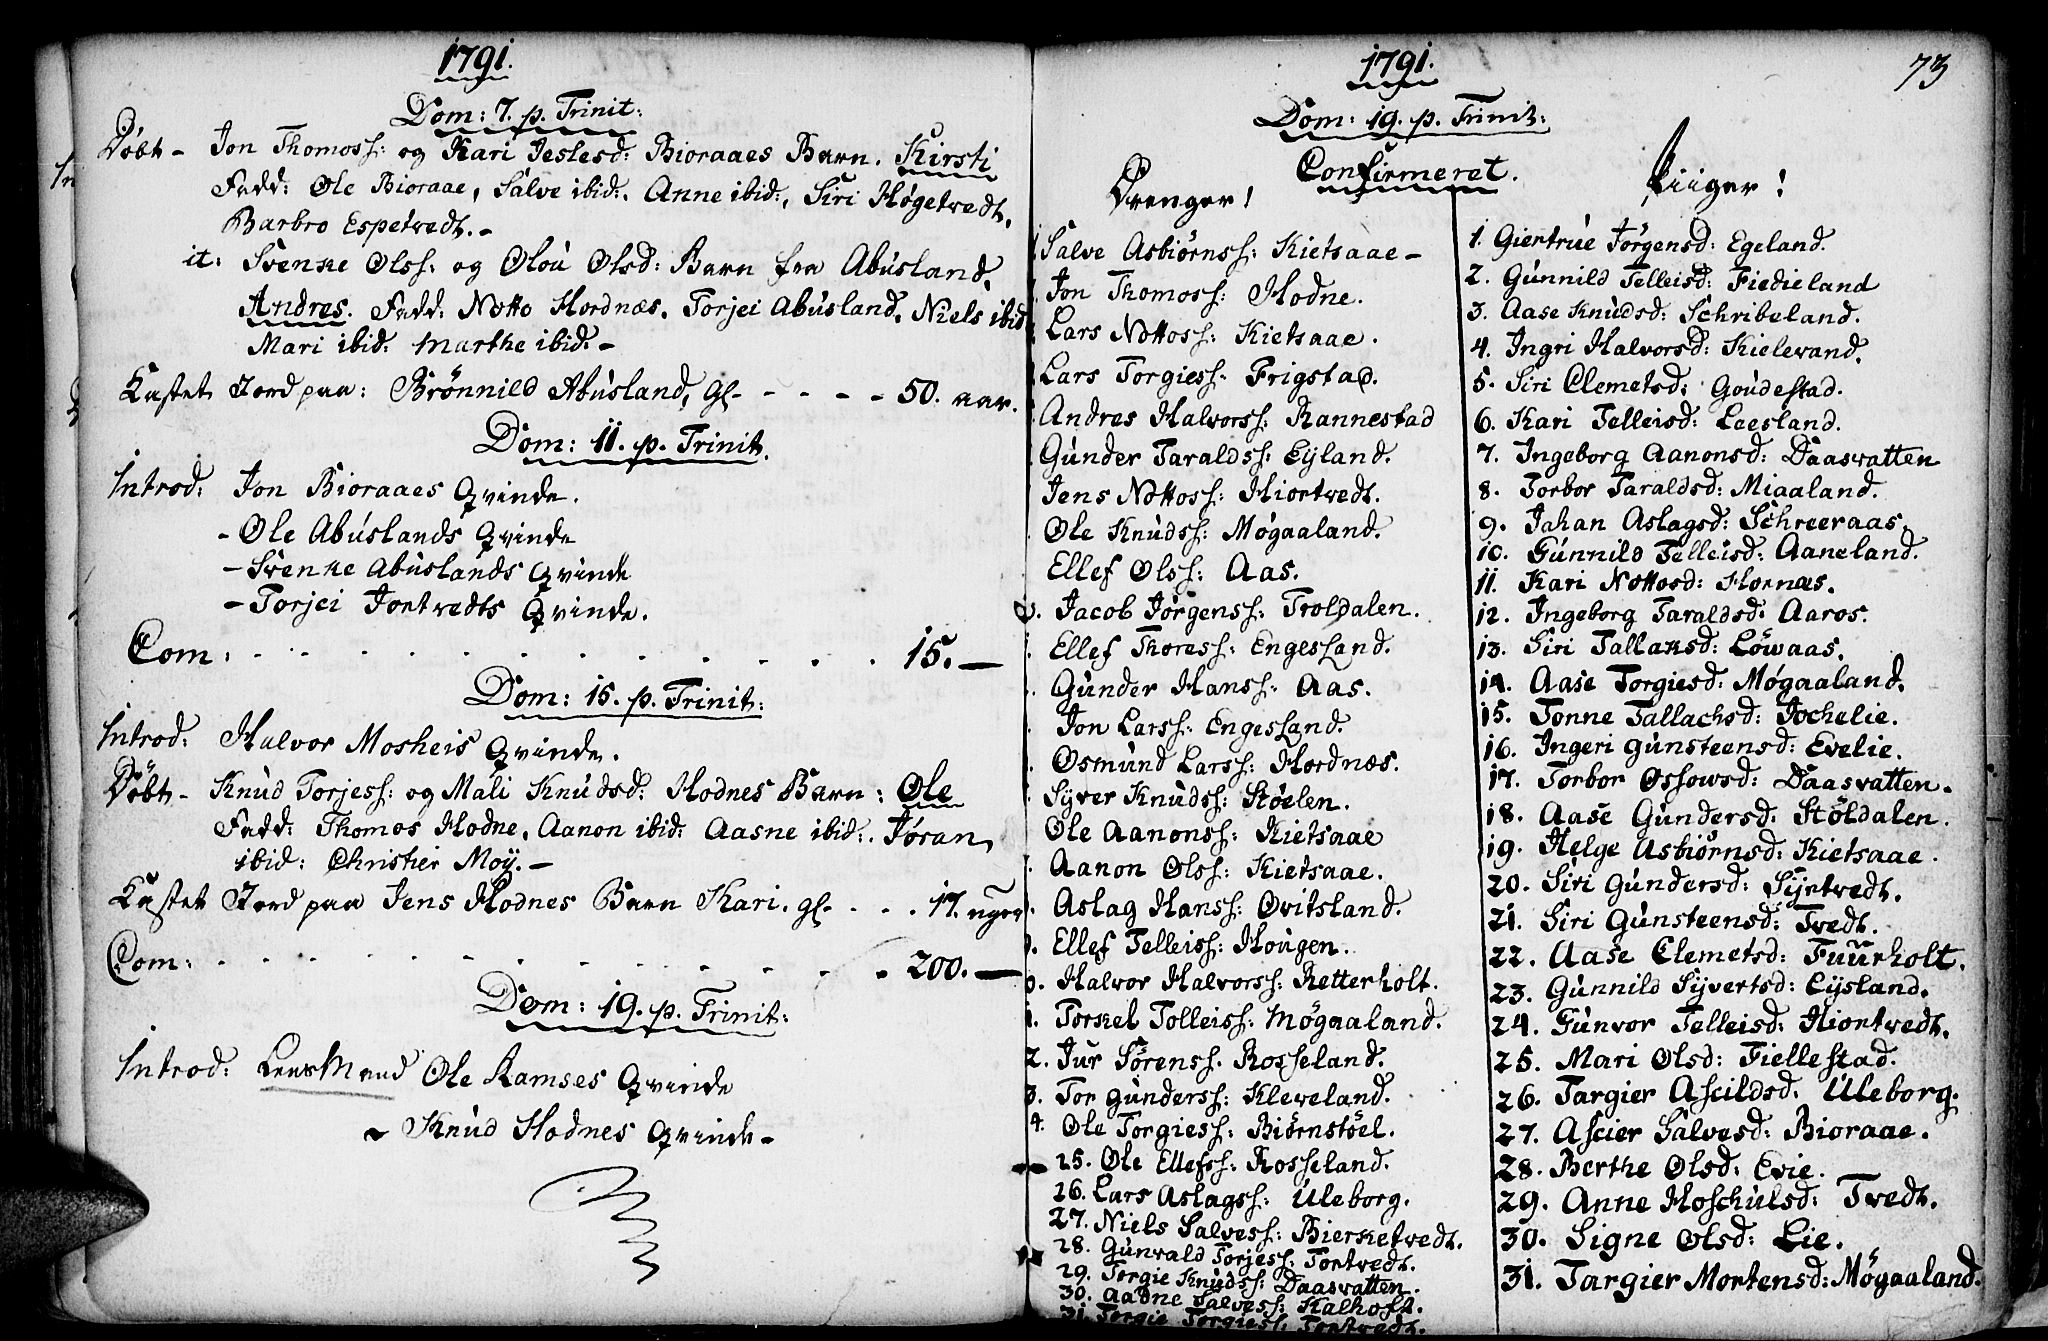 1791.
Dom: 7. p. Trinit:
Døbt - Jon Thomoss: og Kari Jeslesd: Bioraaes Barn. Kirsti
Fadd: Ole Bioraae, Salve ibid:. Anne ibid:, Siri Høgetvedt,
Barbro Espetvedt. -
it: Svenke Olss: og Oloú Olsd: Barn fra Abúsland,
Andres. Fadd: Notto Hordnæs. Torjei Abúsland, Niels ibid
Mari ibid: Marthe ibid. -
Kastet Jord paa: Brønnild Abúsland, gl. - - - - 50. aar.
Dom: 11. p. Trinit.
Introd: Jon Bioraaes Qvinde.
- Ole Abúslands Qvinde
- Svenke Abúslands Qvinde
- Torjei Jortvedts Qvinde.
Com: . . . . . . . . . . 15. —
Dom: 15. p. Trinit:
Introd: Halvor Mosheis Qvinde.
Døbt - Knúd Torjess: og Mali Knúdsd: Hodnes Barn: Ole
Fadd: Thomos Hodne, Aanon ibid: Aasne ibid:. Jøran
ibid: Christier Moÿ. -
Kastet Jord paa Jens Hodnes Barn Kari. gl. - . . . 17. uger
Com: . . . . . . . . . . 200. —
Dom: 19. p. Trinit:
Introd: LensMand Ole Ramses Qvinde
- Knúd Hodnes Qvinde -
1791.
73
Dom: 19. p. Trinit:
Confirmeret.
Drenge!
Salve Asbiørnss: Kietsaae -
Jon Thomoss: Hodne.
Lars Nottoss: Kietsaae.
Lars Torgiess: Frigstad.
Andres Halvorss: Rannestad
Gúnder Taraldss: Eyland.
Jens Nottoss: Hiortvedt.
Ole Knúdss: Møgaaland.
Ellef Olss: Aas.
0. Jacob Jørgenss: Troldalen.
Ellef Thoress: Engesland.
Gúnder Hanss: Aas.
Jon Larss: Engesland.
Osmúnd Larss: Hordnæs.
Syver Knúdss: Støelen.
Ole Aanonss: Kietsaae
Aanon Olss: Kietsaae.
Aslag Hanss: Ovitsland.
Ellef Telleiss: Hoúgen.
0. Halvor Halvorss: Retterholt.
1. Torkel Tolleiss: Møgaaland.
2. Jur Sørenss: Rosseland.
3. Tor Gúnderss: Kleveland.
4. Ole Torgiess: Biørnstöel.
25. Ole Ellefss: Rosseland.
26. Lars Aslagss: Úleborg.
27. Niels Salvess: Bierketvedt.
28. Gúnvald Torjess: Tortvedt.
29. Torgie Knúdss: Daasvatten.
30. Aadne Salvess: Kalhoft.
31. Torgie Torgiess: Tortvedt.
Piiger!
1. Giertrúe Jørgensd: Egeland.
2. Gúnnild Telleisd: Fiedieland
3. Aase Knúdsd: Schribeland.
4. Ingri Halvorsd: Kielevand.
5. Siri Clemetsd: Goúdestad.
6. Kari Telleisd: Leesland.
7. Ingeborg Aanonsd: Daasvatten
8. Torbor Taraldsd: Miaaland.
9. Jahan Aslagsd: Schreeraas.
10. Gúnnild Telleisd: Aaneland.
11. Kari Nottosd: Hornæs.
12. Ingeborg Taraldsd: Aaros.
13. Siri Tallaksd: Löwaas.
14. Aase Torgiesd: Møgaaland.
15. Tonne Tallachsd: Jochelie.
16. Ingeri Gúnsteensd: Evelie.
17. Torbor Ossowsd: Daasvatten.
18. Aase Gúndersd: Stöldalen.
19. Helge Asbiørnsd: Kietsaae.
20. Siri Gúndersd: Syntvedt.
21. Siri Gúnsteensd: Tvedt.
22. Aase Clemetsd: Fúúrholt.
23. Gúnnild Syvertsd: Eysland.
24. Gúnvor Telleisd: Hiortvedt.
25. Mari Olsd: Fiellestad.
26. Targier Ascildsd. Úleborg.
27. Ascier Salvesd: Bioraae.
28. Berthe Olsd: Evie.
29. Anne Hoschúlsd: Tvedt.
30. Signe Olsd: Lie.
31. Targier Mortensd: Møgaaland.